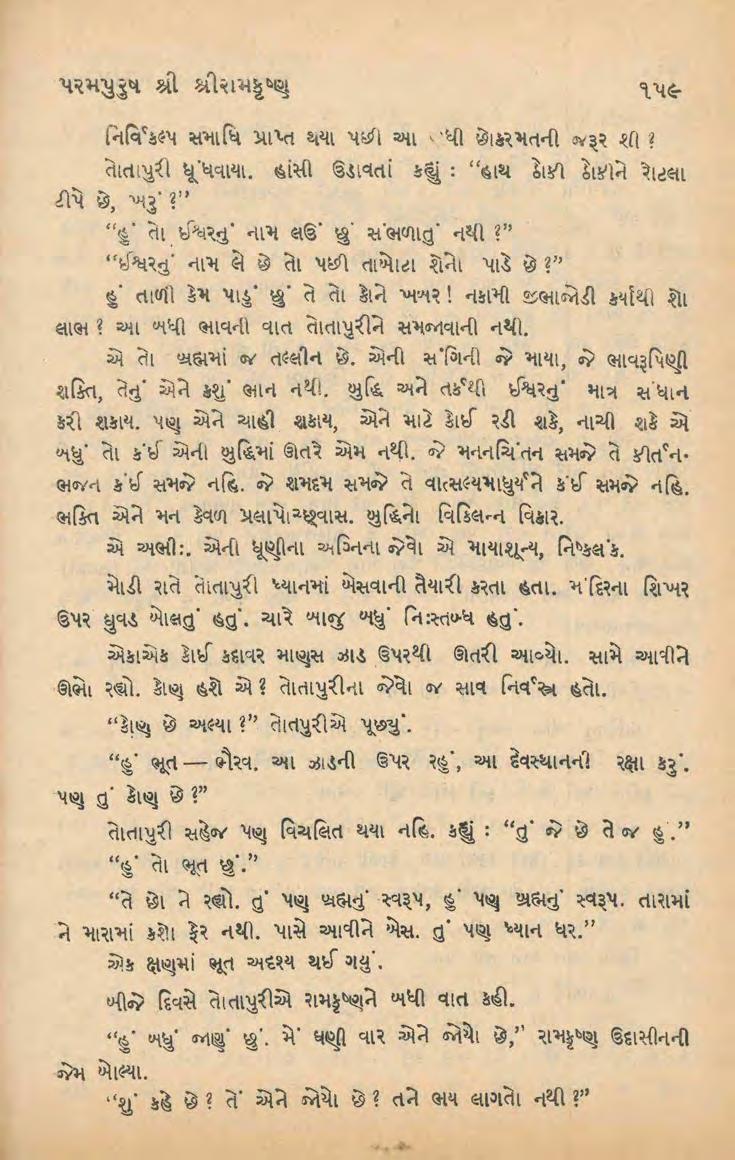 પરમપુરુષ શ્રી શ્રીરામકૃષ્ણ ૧૫૯
નિર્વિકલ્પ સમાધિ પ્રાપ્ત થયા પછી આ ધી છોકરમતની જરૂર શી ?
તોતાપુરી ધૂંધવાયા. હાંસી ઉડાવતાં કહ્યું : “હાથ ઠોકી ઠોકીને રોટલા
ટીપે છે, ખરું ?”
“હું તો ઈશ્વરનું નામ લઉં છું સંભળાતું નથી ?”
“ઈશ્વરનું નામ લે છે તો પછી તાબોટા શેનો પાડે છે ?”
હું તાળી કેમ પાડું છું તે તો કોને ખબર ! નકામી જીભાજોડી કર્યાથી શો
લાભ ? આ બધી ભાવની વાત તોતાપુરીને સમજાવાની નથી.
એ તો બ્રહ્મમાં જ તલ્લીન છે. એની સંગિની જે માયા, જે ભાવરૂપિણી
શક્તિ, તેનું એને કશું ભાન નથી. બુદ્ધિ અને તર્કથી ઈશ્વરનું માત્ર સંધાન
કરી શકાય. પણ એને ચાહી શકાય, એને માટે કોઈ રડી શકે, નાચી શકે એ
બધું તો કંઈ એની બુદ્ધિમાં ઊતરે એમ નથી. જે મનનચિંતન સમજે તે કીર્તન-
ભજન કંઈ સમજે નહિ. જે શમદમ સમજે તે વાત્સલ્યમાધુર્યને કંઈ સમજે નહિ.
ભક્તિ એને મન કેવળ પ્રલાપોચ્છ્વાસ. બુદ્ધિનો વિકિલન્ન વિકાર.
એ અભીઃ. એની ધૂણીના અગ્નિના જેવો એ માયાશૂન્ય, નિષ્કલંક.
મોડી રાતે તોતાપુરી ધ્યાનમાં બેસવાની તૈયારી કરતા હતા. મંદિરના શિખર
ઉપર ઘુવડ બોલતું હતું. ચારે બાજુ બધું નિઃસ્તબ્ધ હતું.
એકાએક કોઈ કદ્દાવર માણસ ઝાડ ઉપરથી ઊતરી આવ્યો. સામે આવીને
ઊભો રહ્યો. કોણ હશે એ ? તોતાપુરીના જેવો જ સાવ નિર્વસ્ત્ર હતો.
“કોણ છે અલ્યા ?” તોતપુરીએ પૂછ્યું.
“હું ભૂત — ભૈરવ. આ ઝાડની ઉપર રહું, આ દેવસ્થાનની રક્ષા કરું.
પણ તું કોણ છે ?”
તોતાપુરી સહેજ પણ વિચલિત થયા નહિ. કહ્યું : “તું જે છે તે જ હું.”
“હું તો ભૂત છું.”
“તે છો ને રહ્યો. તું પણ બ્રહ્મનું સ્વરૂપ, હું પણ બ્રહ્મનું સ્વરૂપ. તારામાં
ને મારામાં કશો ફેર નથી. પાસે આવીને બેસ. તું પણ ધ્યાન ધર.”
એક ક્ષણમાં ભૂત અદશ્ય થઈ ગયું.
બીજે દિવસે તોતાપુરીએ રામકૃષ્ણને બધી વાત કહી.
“હું બધું જાણું છું. મેં ઘણી વાર એને જોયો છે,” રામકૃષ્ણ ઉદાસીનની
જેમ બોલ્યા.
“શું કહે છે ? તેં એને જોયો છે ? તને ભય લાગતો નથી ?”